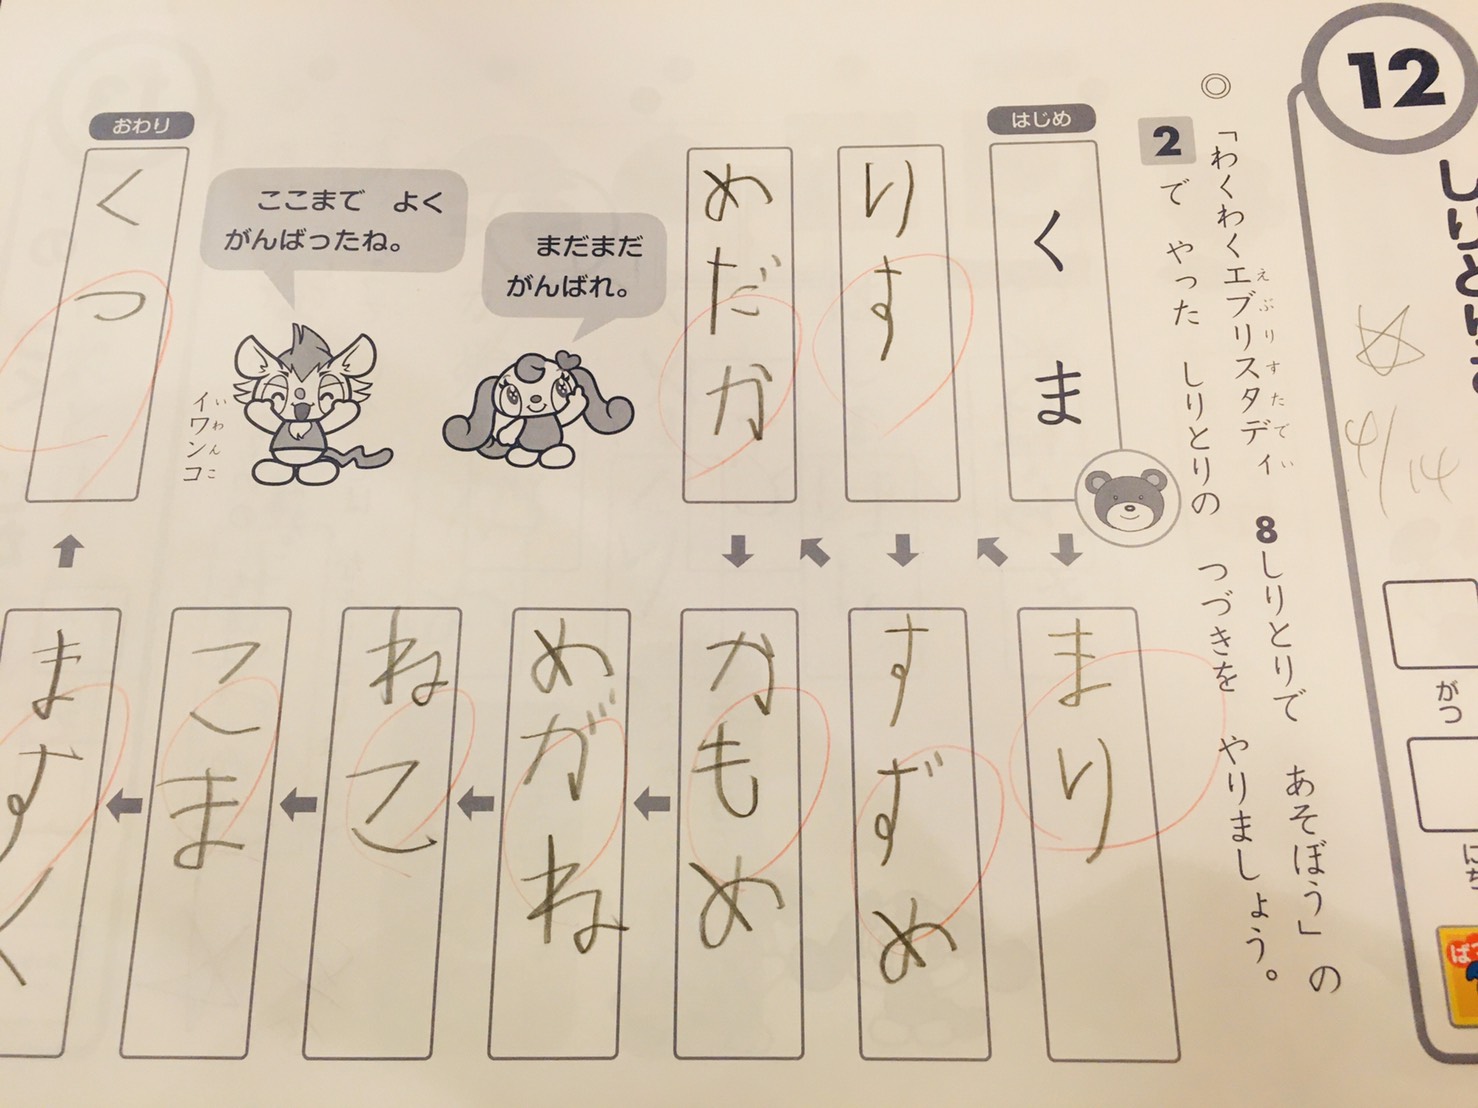 12
4/14
がつ
◎「わくわくエブリスタディ 8しりとりで あそぼう」の
えぶりすたでい
2で やった しりとりの つづきを やりましょう。
はじめ
くま
まり
りす
すずめ
めだか
かもめ
まだまだ
がんばれ。
めがね
ねこ
こま
ここまで よく
がんばったね。
イワンコ
いわんこ
ますく
おわり
くつ